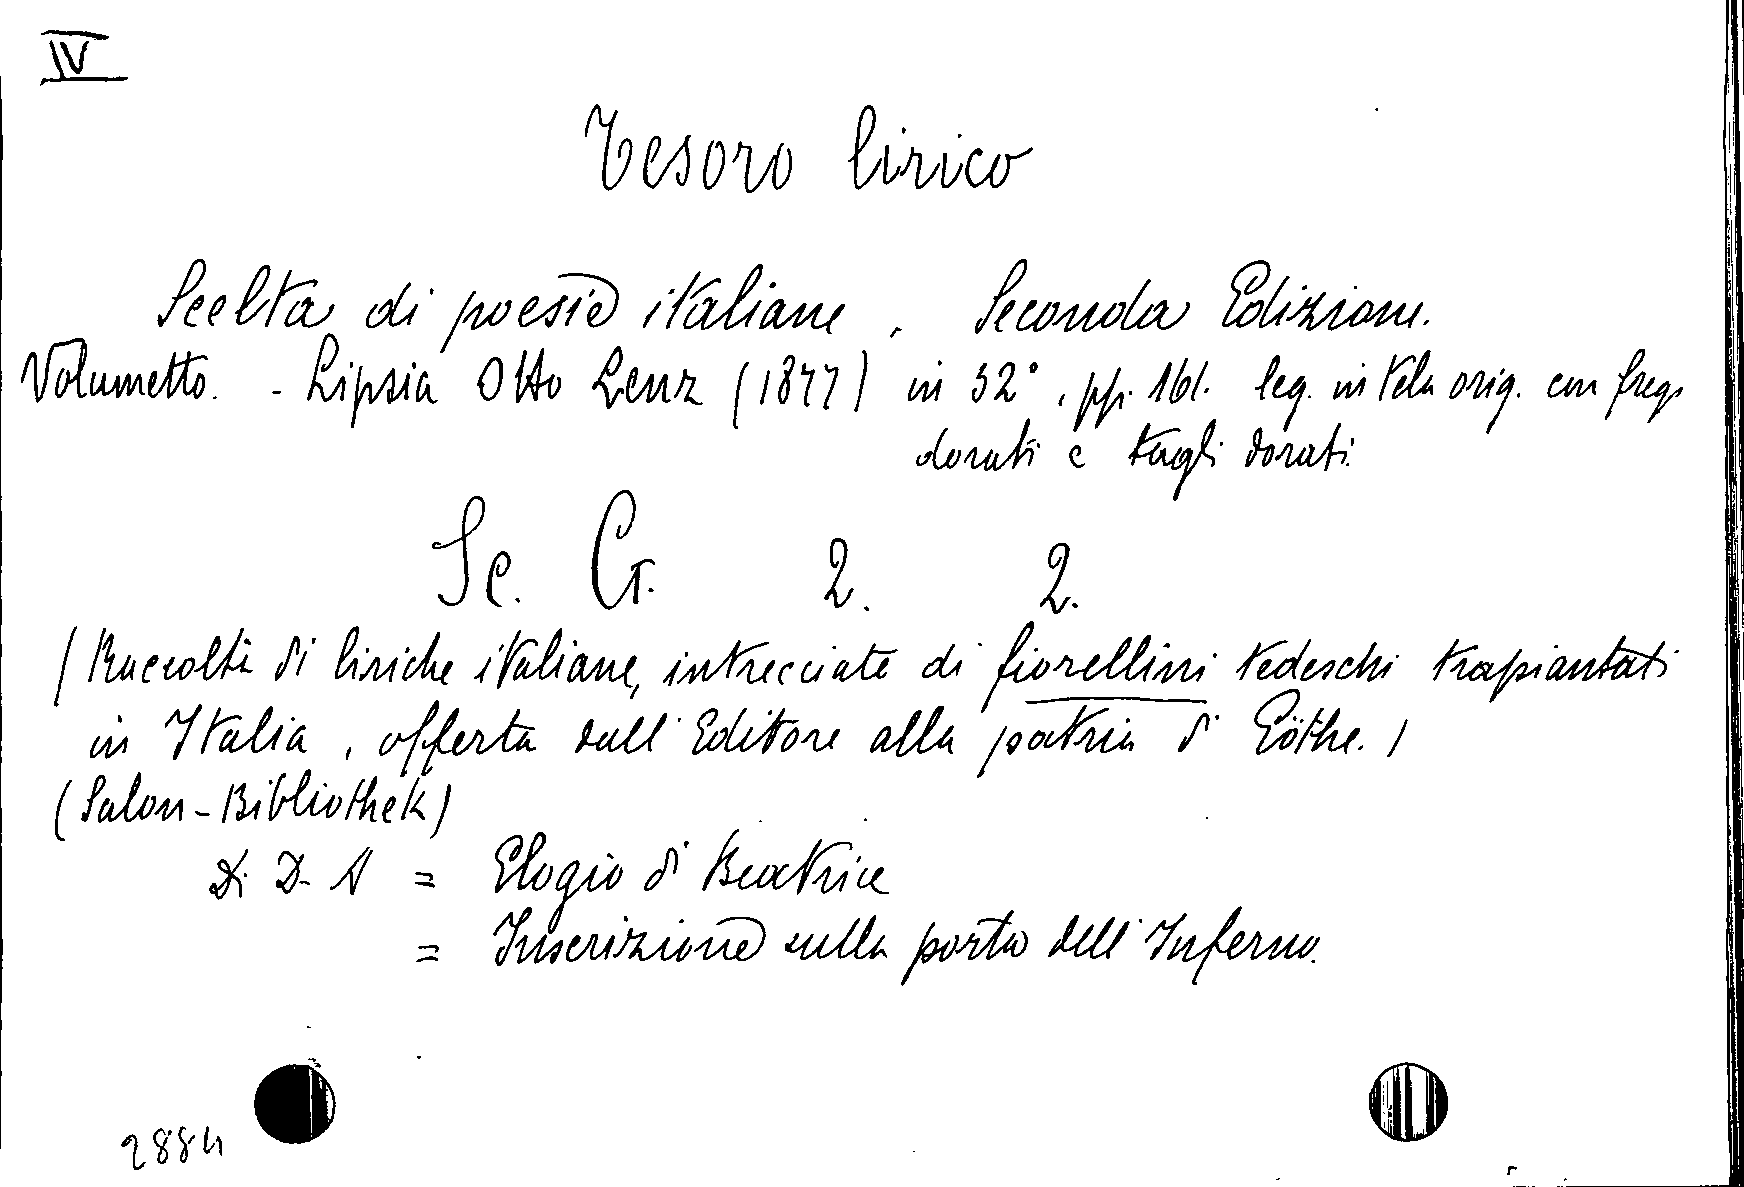 IV
Tesoro lirico
Scelta di poesie italiane. Seconda Edizione.
Volumetto. - Lipsia Otto Lenz (1877) in 32°, pp. 161. leg. in tela orig. con fregi
dorati e tagli dorati.
Sc. Cr. 2. 2.
(Raccolta di liriche italiane, intrecciate di fiorellini tedeschi trapiantati
in Italia, offerta dall'Editore alla patria di Göthe.)
(Salon-Bibliothek)
Di D. A = Elogio di Beatrice
= Inscrizione sulla porta dell'Inferno.
2884